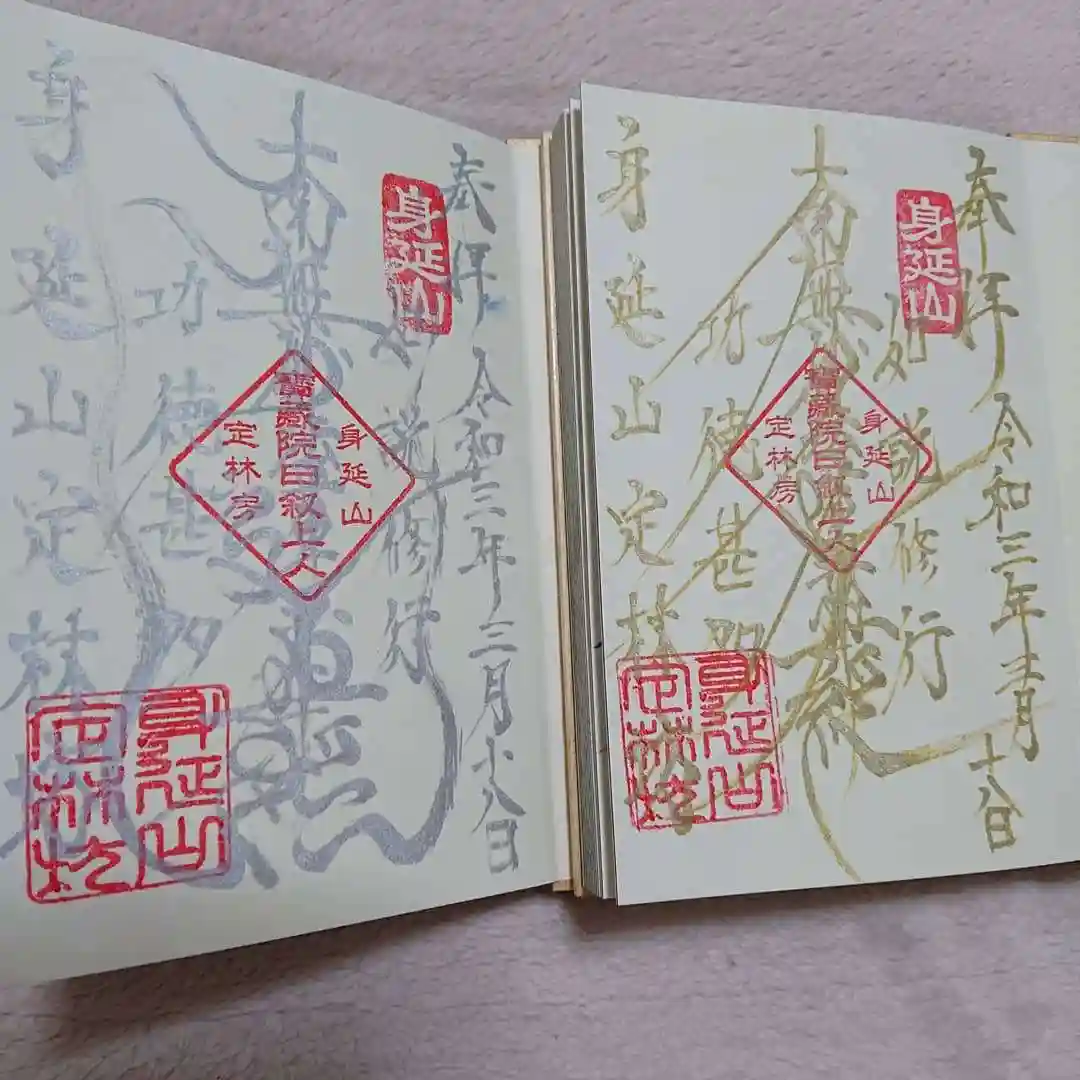 奉拝 令和三年三月十八日
身延山
如説修行
南無妙法蓮華経
身延山
寶蔵院日叙上人
定林房
功徳甚
身延山定林坊
身延山
定林坊
奉拝 令和三年三月十八日
身延山
如説修行
南無妙法蓮華経
身延山
寶蔵院日叙上人
定林房
功徳甚多
身延山定林坊
身延山
定林坊